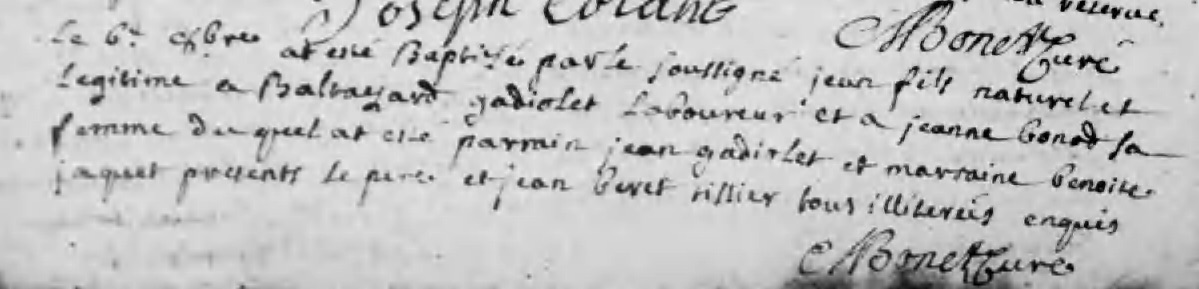 Joseph
reserve.
MBonet Curé
Le 6e xbre at esté Baptisé par le soussigné jean fils naturel et
Legitime a Baltazard gadiolet Laboureur et a jeanne bonod sa
femme du quel at esté parrain jean gadiolet et marraine benoite
jaquet presents Le pere et jean beret tissier tous illiterés enquis
MBonet Curé